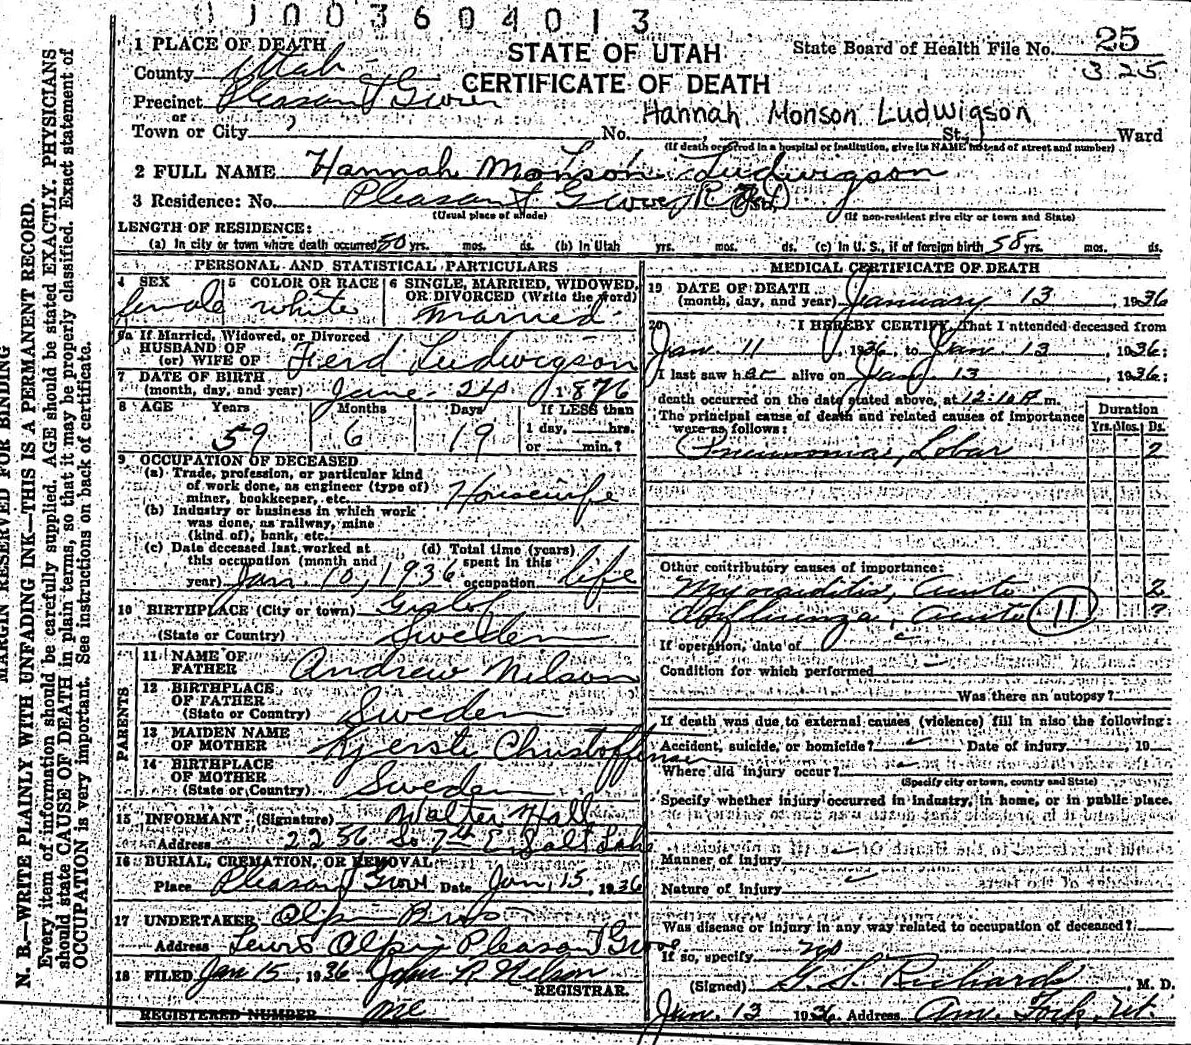 0 1 0 0 3 6 0 4 0 1 3
1 PLACE OF DEATH
County Utah
Precinct Pleasant Grove
or
Town or City
STATE OF UTAH
CERTIFICATE OF DEATH
State Board of Health File No. 25
325
Hannah Monson Ludwigson
No. St., Ward
(If death occurred in a hospital or institution, give its NAME instead of street and number)
2 FULL NAME Hannah Monson Ludwigson
3 Residence: No. Pleasant Grove
(Usual place of abode) (If non-resident give city or town and State)
LENGTH OF RESIDENCE:
(a) In city or town where death occurred 50 yrs. mos. ds. (b) In Utah yrs. mos. ds. (c) In U. S., if of foreign birth 58 yrs. mos. ds.
PERSONAL AND STATISTICAL PARTICULARS
4 SEX female
5 COLOR OR RACE white
6 SINGLE, MARRIED, WIDOWED, OR DIVORCED (Write the word) married
6a If Married, Widowed, or Divorced
HUSBAND OF
(or) WIFE OF Ferd Ludwigson
7 DATE OF BIRTH
(month, day, and year) June 24 1876
8 AGE Years Months Days If LESS than
59 6 19 1 day, hrs.
or min.?
9 OCCUPATION OF DECEASED
(a) Trade, profession, or particular kind
of work done, as engineer (type of)
miner, bookkeeper, etc. Housewife
(b) Industry or business in which work
was done, as railway, mine
(kind of), bank, etc.
(c) Date deceased last worked at
this occupation (month and
year) Jan. 10, 1936
(d) Total time (years)
spent in this
occupation life
10 BIRTHPLACE (City or town)
(State or Country) Sweden
PARENTS
11 NAME OF
FATHER Andrew Nilson
12 BIRTHPLACE
OF FATHER
(State or Country) Sweden
13 MAIDEN NAME
OF MOTHER Kjerste Christoffensen
14 BIRTHPLACE
OF MOTHER
(State or Country) Sweden
15 INFORMANT (Signature) Walter Hall
Address 2256 So 7th E Salt Lake
16 BURIAL, CREMATION, OR REMOVAL
Place Pleasant Grove Date Jan, 15, 1936
17 UNDERTAKER Olpin Bros
Address Lewis Olpin Pleasant Grove
18 FILED Jan 15, 1936 John R. Nelson
REGISTRAR.
REGISTERED NUMBER
MEDICAL CERTIFICATE OF DEATH
19 DATE OF DEATH
(month, day, and year) January 13, 1936
20 I HEREBY CERTIFY, That I attended deceased from
Jan 11, 1936, to Jan. 13, 1936;
I last saw her alive on Jan 13, 1936;
death occurred on the date stated above, at 12:10 P. m.
The principal cause of death and related causes of importance
were as follows:
Duration
Yrs. Mos. Ds.
Pneumonia, Lobar 2
Other contributory causes of importance:
Myocarditis, Acute 2
Influenza, Acute 11 ?
If operation, date of
Condition for which performed
Was there an autopsy?
If death was due to external causes (violence) fill in also the following:
Accident, suicide, or homicide? Date of injury , 19
Where did injury occur?
(Specify city or town, county and State)
Specify whether injury occurred in industry, in home, or in public place.
Manner of injury
Nature of injury
Was disease or injury in any way related to occupation of deceased?
If so, specify no
(Signed) G. S. Richards, M. D.
Jan. 13 1936. Address Am. Fork, Ut.
MARGIN RESERVED FOR BINDING
N. B.—WRITE PLAINLY WITH UNFADING INK—THIS IS A PERMANENT RECORD.
Every item of information should be carefully supplied. AGE should be stated EXACTLY. PHYSICIANS
should state CAUSE OF DEATH in plain terms, so that it may be properly classified. Exact statement of
OCCUPATION is very important. See instructions on back of certificate.